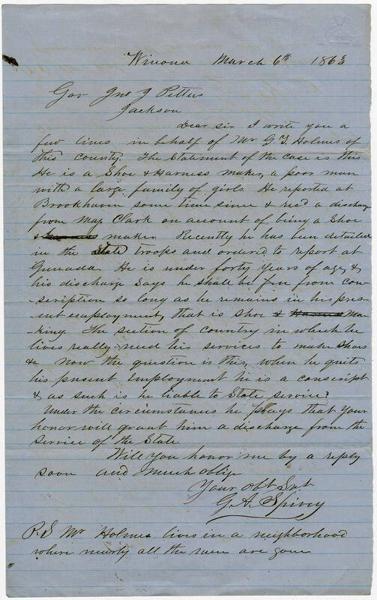 Winona March 6th 1863
Gov Jno J Pettus
Jackson
Dear Sir I write you a
few lines in behalf of Mr G T Holmes of
this County. The Statement of the case is this
He is a Shoe & Harness maker, a poor man
with a large family of girls He reported at
Brookhaven some time since & had a discharge
from Maj Clark on account of being a Shoe
& Harness maker. Recently he has been detailed
in the State troops and ordered to report at
Grenada. He is under forty years of age, &
his discharge Says he shall be free from con-
scription so long as he remains in his pres-
ent employment, that is Shoe & Harness Ma-
king. The section of country in which he
lives really need his services to make Shoes
&c Now the question is this, when he quits
his present Employment he is a conscript
&, as such is he liable to State service?
Under the circumstances he prays that Your
honor will grant him a discharge from the
Service of the State
Will you honor me by a reply
soon and much oblige
Your obt Svt
G. A. Spivey
P. S Mr Holmes lives in a neighborhood
where nearly all the men are gone